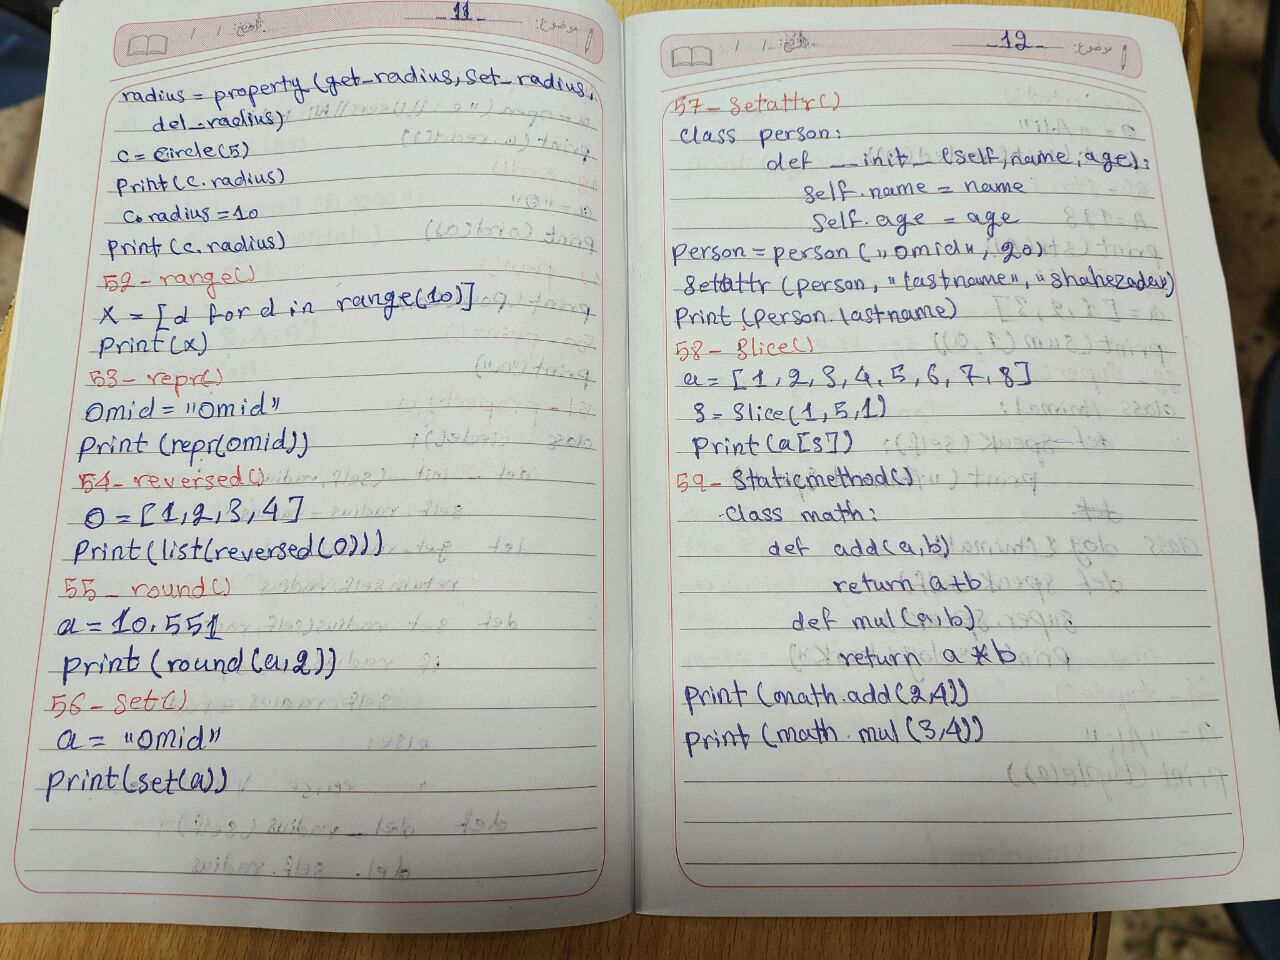 موضوع: 11 تاریخ: / /
radius = property (get_radius, set_radius,
del_radius)
c = circle(5)
print(c.radius)
c.radius = 10
print (c.radius)
52 - range()
x = [d for d in range(10)]
print(x)
53 - repr()
omid = "omid"
print (repr(omid))
54 - reversed()
o = [1,2,3,4]
print(list(reversed(o)))
55 - round()
a = 10.551
print (round(a,2))
56 - set()
a = "omid"
print(set(a))
موضوع: 12 تاریخ: / /
57 - setattr()
class person:
def __init__(self,name,age):
self.name = name
self.age = age
person = person ("omid", 20)
setattr (person, "lastname", "shahezadeh")
print (person.lastname)
58 - slice()
a = [1,2,3,4,5,6,7,8]
s = slice(1,5,1)
print(a[s])
59 - staticmethod()
class math:
def add(a,b)
return a+b
def mul(a,b):
return a*b
print (math.add(2,4))
print (math.mul(3,4))